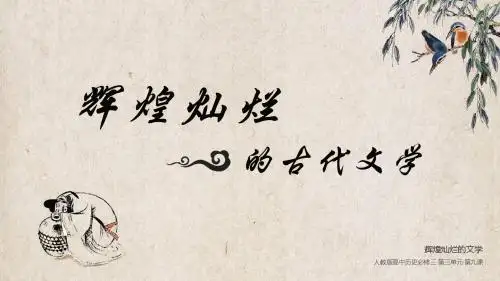 辉煌灿烂
的古代文学
辉煌灿烂的文学
人教版高中历史必修三·第三单元·第九课